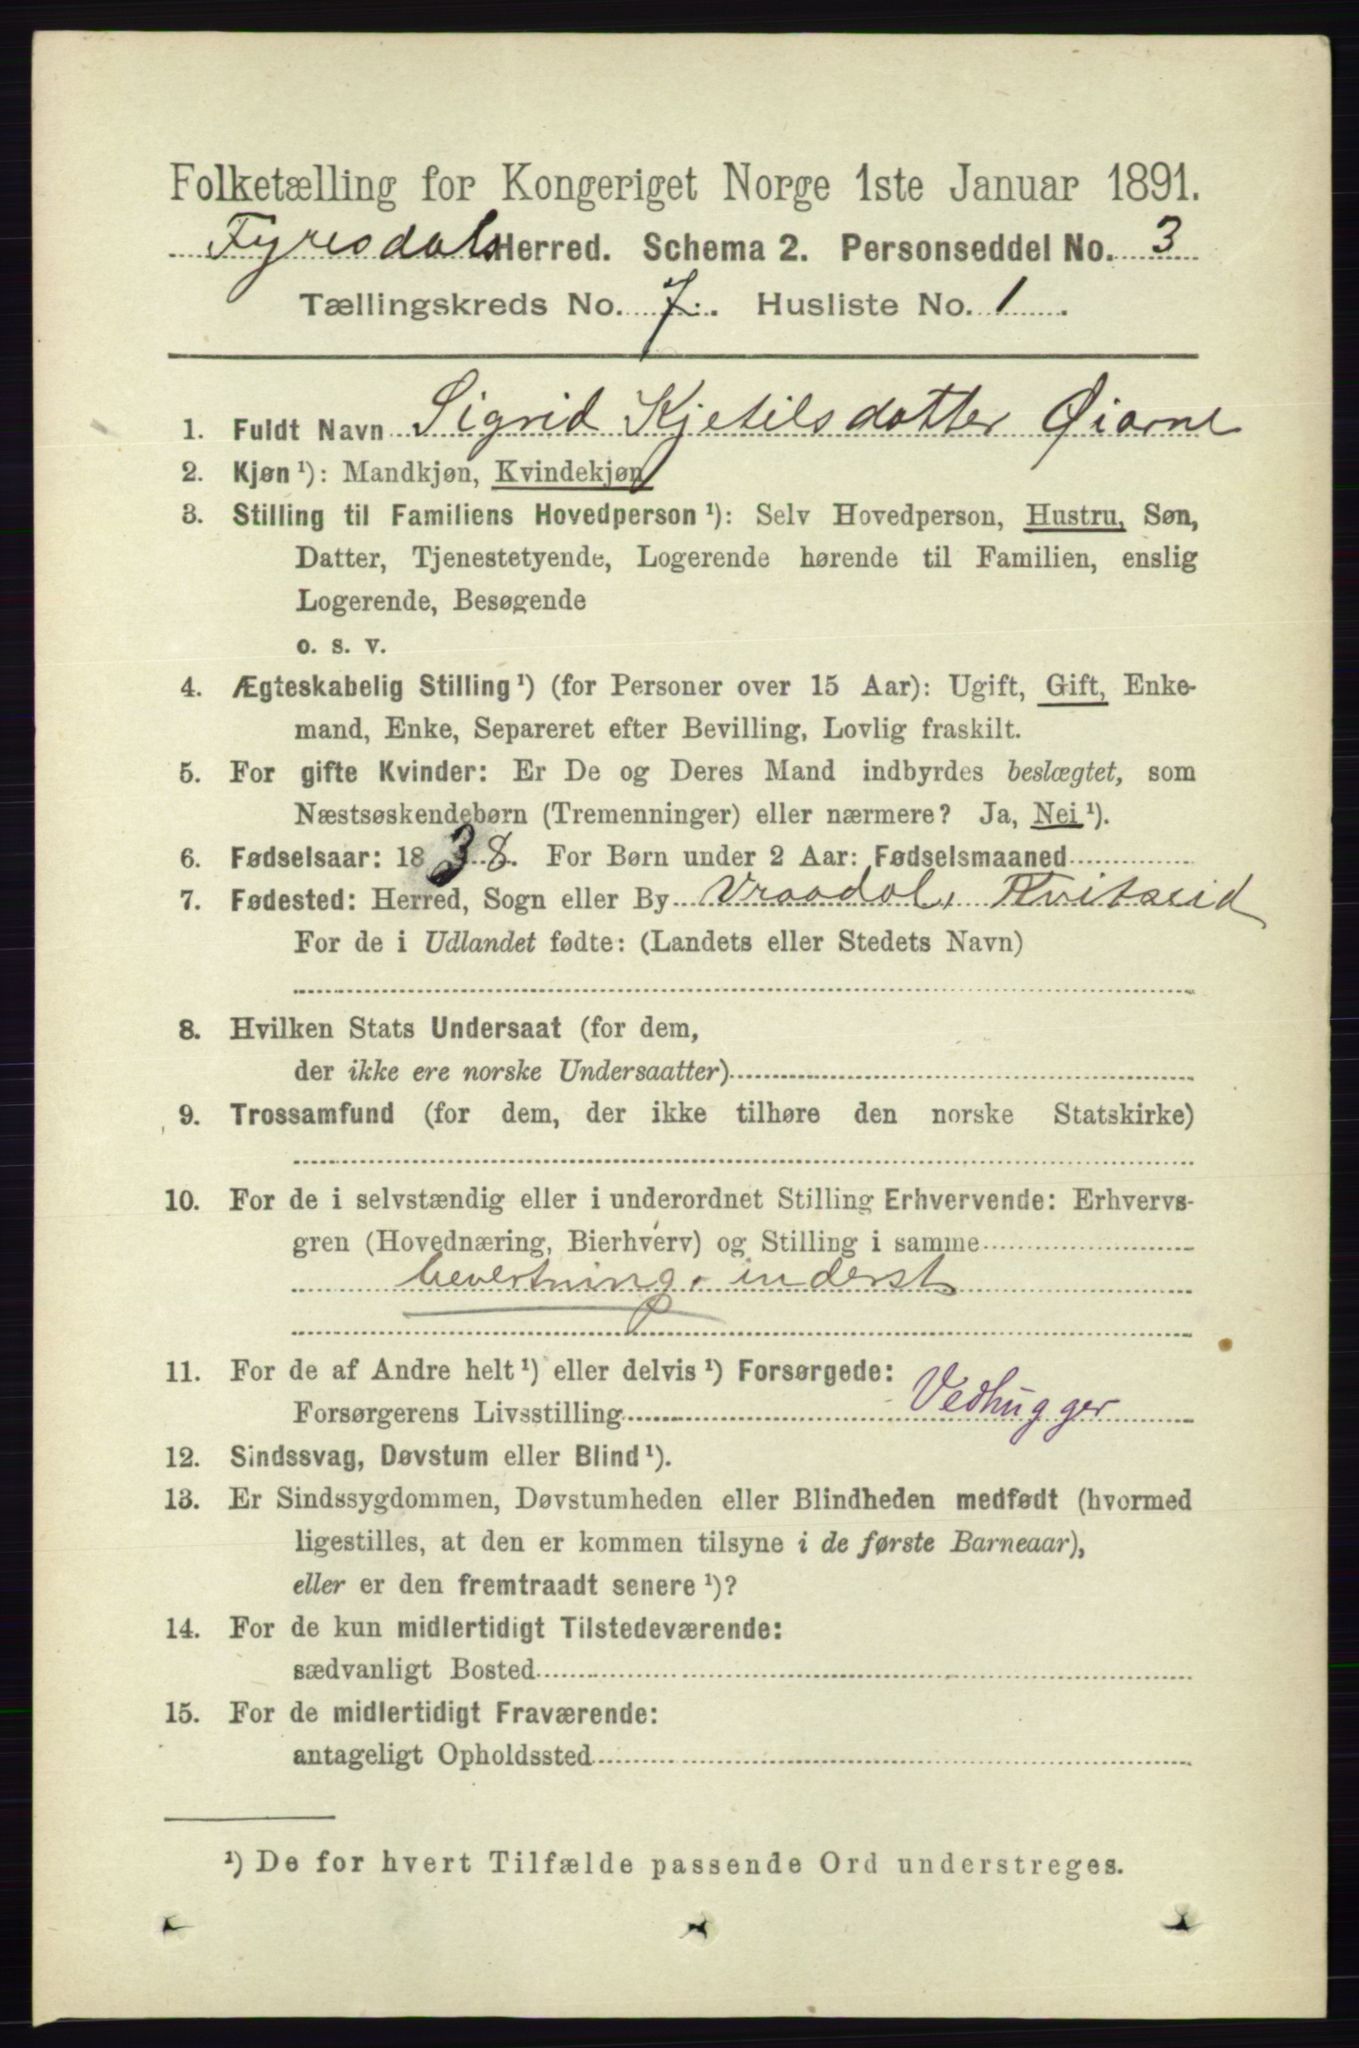 Folketælling for Kongeriget Norge 1ste Januar 1891.
Fyresdals Herred. Schema 2. Personseddel No. 3
Tællingskreds No. 7. Husliste No. 1.
1. Fuldt Navn Sigrid Kjetilsdatter Øiarne
2. Kjøn ¹): Mandkjøn, Kvindekjøn
3. Stilling til Familiens Hovedperson ¹): Selv Hovedperson, Hustru, Søn,
Datter, Tjenestetyende, Logerende hørende til Familien, enslig
Logerende, Besøgende
o. s. v.
4. Ægteskabelig Stilling ¹) (for Personer over 15 Aar): Ugift, Gift, Enke-
mand, Enke, Separeret efter Bevilling, Lovlig fraskilt.
5. For gifte Kvinder: Er De og Deres Mand indbyrdes beslægtet, som
Næstsøskendebørn (Tremenninger) eller nærmere? Ja, Nei ¹).
6. Fødselsaar: 1838. For Børn under 2 Aar: Fødselsmaaned
7. Fødested: Herred, Sogn eller By Vraadal, Kvitseid
For de i Udlandet fødte: (Landets eller Stedets Navn)
8. Hvilken Stats Undersaat (for dem,
der ikke ere norske Undersaatter)
9. Trossamfund (for dem, der ikke tilhøre den norske Statskirke)
10. For de i selvstændig eller i underordnet Stilling Erhvervende: Erhvervs-
gren (Hovednæring, Bierhverv) og Stilling i samme
bevertning. inderst
11. For de af Andre helt ¹) eller delvis ¹) Forsørgede:
Forsørgerens Livsstilling Vedhugger
12. Sindssvag, Døvstum eller Blind ¹).
13. Er Sindssygdommen, Døvstumheden eller Blindheden medfødt (hvormed
ligestilles, at den er kommen tilsyne i de første Barneaar),
eller er den fremtraadt senere ¹)?
14. For de kun midlertidigt Tilstedeværende:
sædvanligt Bosted
15. For de midlertidigt Fraværende:
antageligt Opholdssted
¹) De for hvert Tilfælde passende Ord understreges.